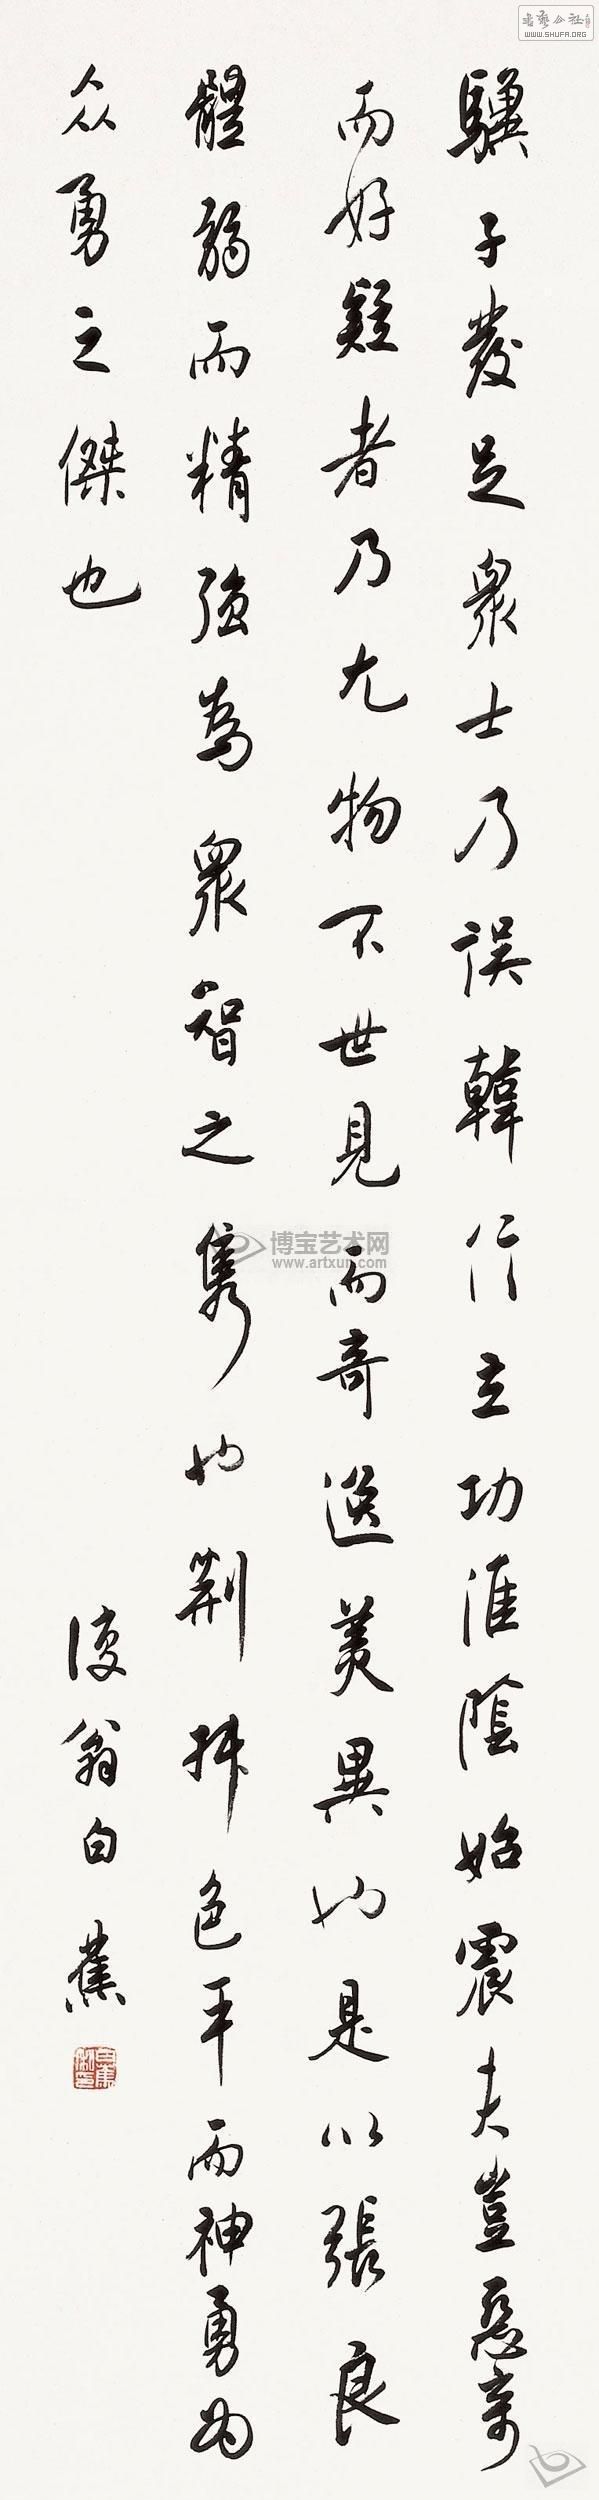 驥子發足眾士乃誤韓信立功淮陰始震夫豈惡奇
而好疑者乃尤物不世見而奇逸美異也是以張良
體弱而精強為眾智之雋也荊軻色平而神勇為
众勇之傑也
復翁白蕉
博宝艺术网
www.artxun.com
书艺公社
WWW.SHUFA.ORG